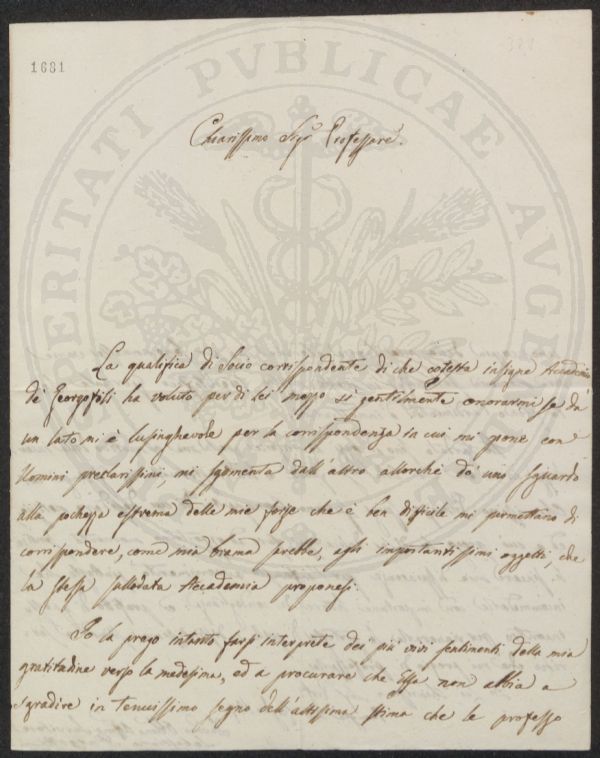 1681
PROSPERITATI PVBLICAE AVGE
Chiarissimo Sigr Professore.
La qualifica di Socio corrispondente di che cotesta insigne Accademia
de' Georgofili ha voluto per di lei mezzo sì gentilmente onorarmi se da
un lato mi è lusinghevole per la corrispondenza in cui mi pone con
Uomini preclarissimi, mi sgomenta dall'altro allorchè dò uno sguardo
alla pochezza estrema delle mie forze che è ben difficile mi permettano di
corrispondere, come mia brama sarebbe, agli importantissimi oggetti, che
la stessa sullodata Accademia proponesi.
Io la prego intanto farsi interprete dei più vivi sentimenti della mia
gratitudine verso la medesima, ed a procurare che Essa non abbia a
sgradire in tenuissimo segno dell'altissima stima che le professo